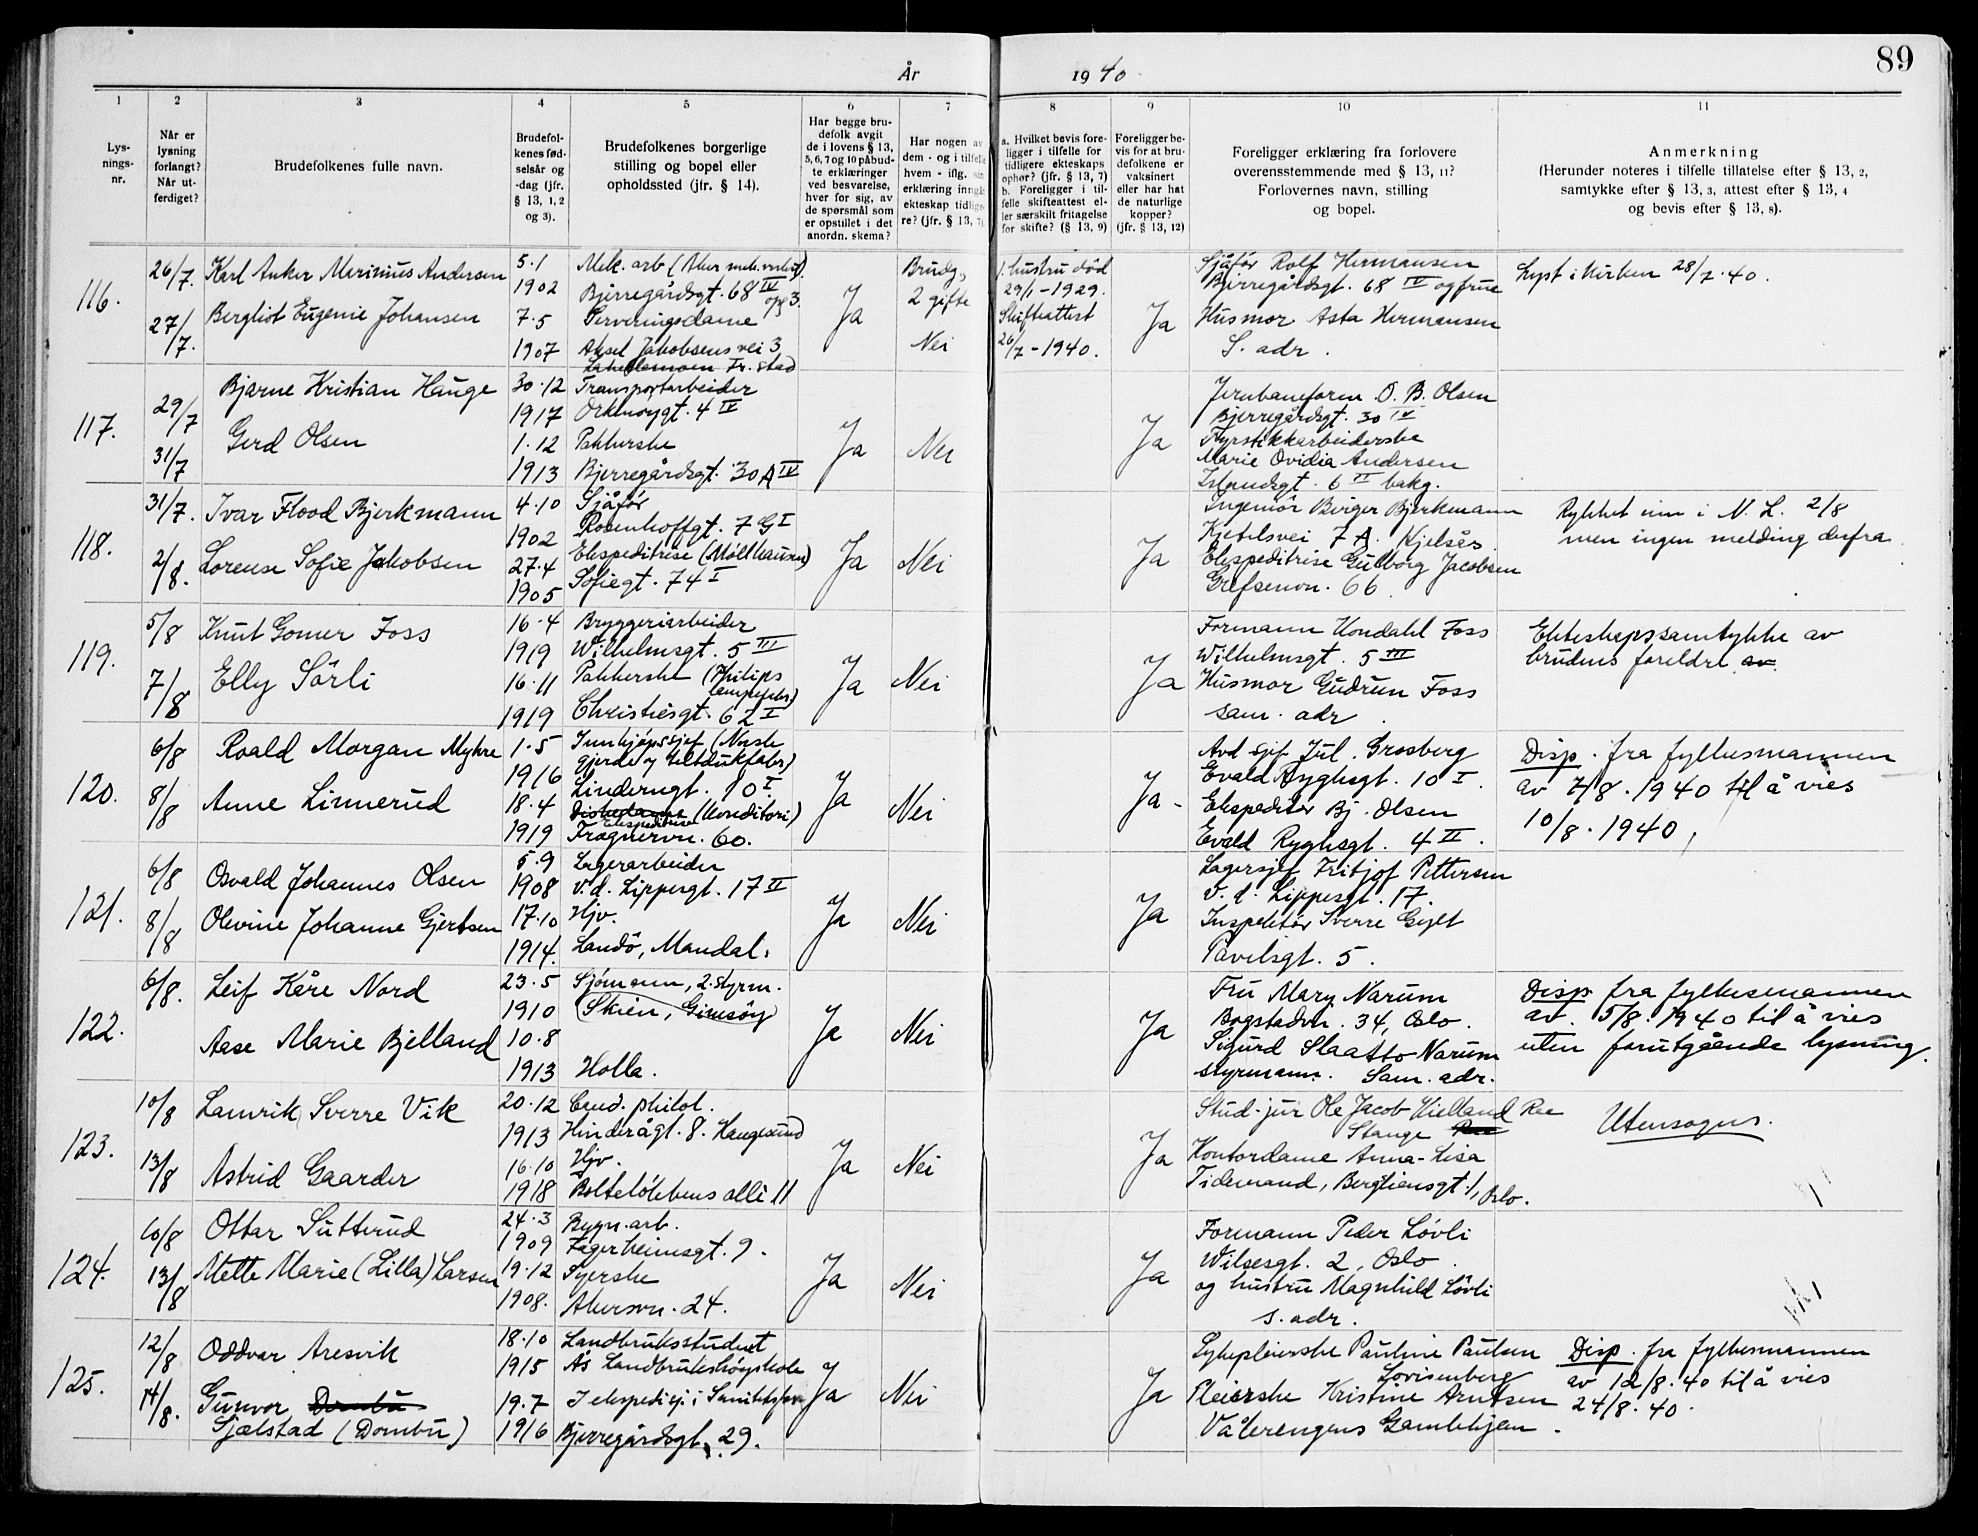 89
År 1940
1 2 3 4 5 6 7 8 9 10 11
Lys-
nings-
nr.
Når er
lysning
forlangt?
Når ut-
ferdiget?
Brudefolkenes fulle navn.
Brudefol-
kenes fød-
selsår og
-dag (jfr.
§ 13, 1, 2
og 3).
Brudefolkenes borgerlige
stilling og bopel eller
opholdssted (jfr. § 14).
Har begge bru-
defolk avgit
de i lovens § 13,
5, 6, 7 og 10 påbud-
te erklæringer
ved besvarelse,
hver for sig, av
de spørsmål som
er opstillet i det
anordn. skema?
Har nogen av
dem - og i tilfelle
hvem - iflg. sin
erklæring inngåt
ekteskap tidlige-
re? (jfr. § 13, 7)
a. Hvilket bevis fore-
ligger i tilfelle for
tidligere ekteskaps
ophør? (jfr. § 13, 7)
b. Foreligger i til-
felle skifteattest el-
ler særskilt fritagelse
for skifte? (§ 13, 9)
Foreligger be-
vis for at bru-
defolkene er
vaksinert
eller har hat
de naturlige
kopper?
(jfr. § 13, 12)
Foreligger erklæring fra forlovere
overensstemmende med § 13, 11?
Forlovernes navn, stilling
og bopel.
Anmerkning
(Herunder noteres i tilfelle tillatelse efter § 13, 2,
samtykke efter § 13, 3, attest efter § 13, 4
og bevis efter § 13, 8).
116.
26/7.
27/7.
Karl Anker Marinius Andersen
Bergliot Eugenie Johansen
5.1
1902
7.5
1907
Mek. arb (Aker mek. verksted).
Bjerregårdsgt. 68 IV opg 3.
Serveringsdame
Aksel Jakobsens vei 3
Fr.stad
Ja
Brudg.
2 gifte
Nei
1. hustru död
29/1-1929.
Skifteattest
26/7-1940.
Ja
Sjåför Rolf Hermansen
Bjerregårdsgt. 68 IV og frue
Husmor Asta Hermansen
S. adr.
Lyst i kirken 28/7.40.
117.
29/7
31/7
Bjarne Kristian Hauge
Gerd Olsen
30.12
1917
1.12
1913
Transportarbeider
Orknöygt. 4 IV
Pakkerske
Bjerregårdsgt. 30 A IV
Ja
Nei
Ja
Jernbaneform. O. B. Olsen
Bjerregårdsgt. 30 IV
Fyrstikkarbeiderske
Marie Ovidia Andersen
Islandsgt. 6 II bakg.
118.
31/7.
2/8.
Ivar Flood Bjerkmann
Lorense Sofie Jakobsen
4.10
1902
27.4
1905
Sjåför
Rosenhoffgt. 7 G I
Ekspeditrise (Möllhausen)
Sofiegt. 74 I
Ja
Nei
Ja
Ingeniör Birger Bjerkmann
Kjetilsvei 7 A. Kjelsås
Ekspeditrise Gudborg Jacobsen
Grefsenvn. 66.
Rykket inn i N. L. 2/8
men ingen melding derfra
119.
5/8
7/8
Knut Gomer Foss
Elly Sörli
16.4
1919
16.11
1919
Bryggeriarbeider
Wilhelmsgt. 5 III
Pakkerske (Philips
lampefabr.)
Christiesgt. 62 I
Ja
Nei
Ja
Formann Kondahl Foss
Wilhelmsgt. 5 III
Husmor Gudrun Foss
sam. adr.
Ekteskapssamtykke av
brudens foreldre av
120.
6/8
8/8
Roald Morgan Myhre
Anne Linnerud
1.5
1916
18.4
1919
Innkjöpssjef (Norsk
gjerde og veltdukfabr.)
Linderngt. 10 I.
Diskedame (Konditori)
Ekspeditrise
Frognervn. 60.
Ja
Nei
Ja-
Avd sjef Jul. Grosberg
Evald Ryghsgt. 10 I.
Ekspeditör Bj. Olsen
Evald Ryghsgt. 4 II.
Disp. fra fylkesmannen
av 7/8.1940 til å vies
10/8.1940.
121.
6/8
8/8
Osvald Johannes Olsen
Olevine Johanne Gjertsen
5.9
1908
17.10
1914.
Lagerarbeider
v. d. Lippesgt. 17 II
Hjv.
Landö, Mandal.
Ja
Nei
Ja
Lagersjef Fritjof Pettersen
v. d. Lippesgt. 17.
Inspektör Sverre
Pavelsgt. 5.
122.
6/8.
Leif Kåre Nord
Aase Marie Bjelland
23.5
1910
10.8
1913
Sjömann, 2. styrm.
(Skien, Gimsöy)
Holla.
Ja
Nei
Ja
Fru Mary Narum
Bogstadvn. 34, Oslo.
Sigurd Slaatto Narum
styrmann. Sam. adr.
Disp. fra fylkesmannen
av 5/8.1940 til å vies
uten forutgående lysning.
123.
10/8
13/8
Lamrik Sverre Vik
Astrid Gaarder
20.12
1913
16.10
1918
Cand. philol.
Hinderågt. 8. Haugesund
Hjv.
Bolteløkkens allé 11
Ja
Nei
Ja
Stud. jur Ole Jacob Kielland Rae
Stange
Kontordame Anna-Lisa
Tidemand, Bergliensgt. 1, Oslo.
Utensogns.
124.
10/8
13/8
Ottar Sutterud
Mette Marie (Lilla) Larsen
24.3
1909
19.12
1908.
Bygn. arb.
Fagerheimsgt. 9.
Syerske
Akersvn. 24.
Ja
Nei
Ja
Formann Peder Lövli
Wilsesgt. 2, Oslo.
og hustru Magnhild Lövli
s. adr.
125.
12/8
14/8.
Oddvar Aresvik
Gunvor Dombu
Sjælstad (Dombu)
18.10
1915
19.7
1916
Landbruksstudent
Ås Landbrukshöyskole
Bjerregårdsgt. 29.
Ja
Nei
Ja
Sykepleierske Pauline Paulsen
Lovisenberg
Pleierske Kristine Arntsen
Vålerengens Gamlehjem.
Disp. fra fylkesmannen
av 12/8.40 til å vies
24/8.40.